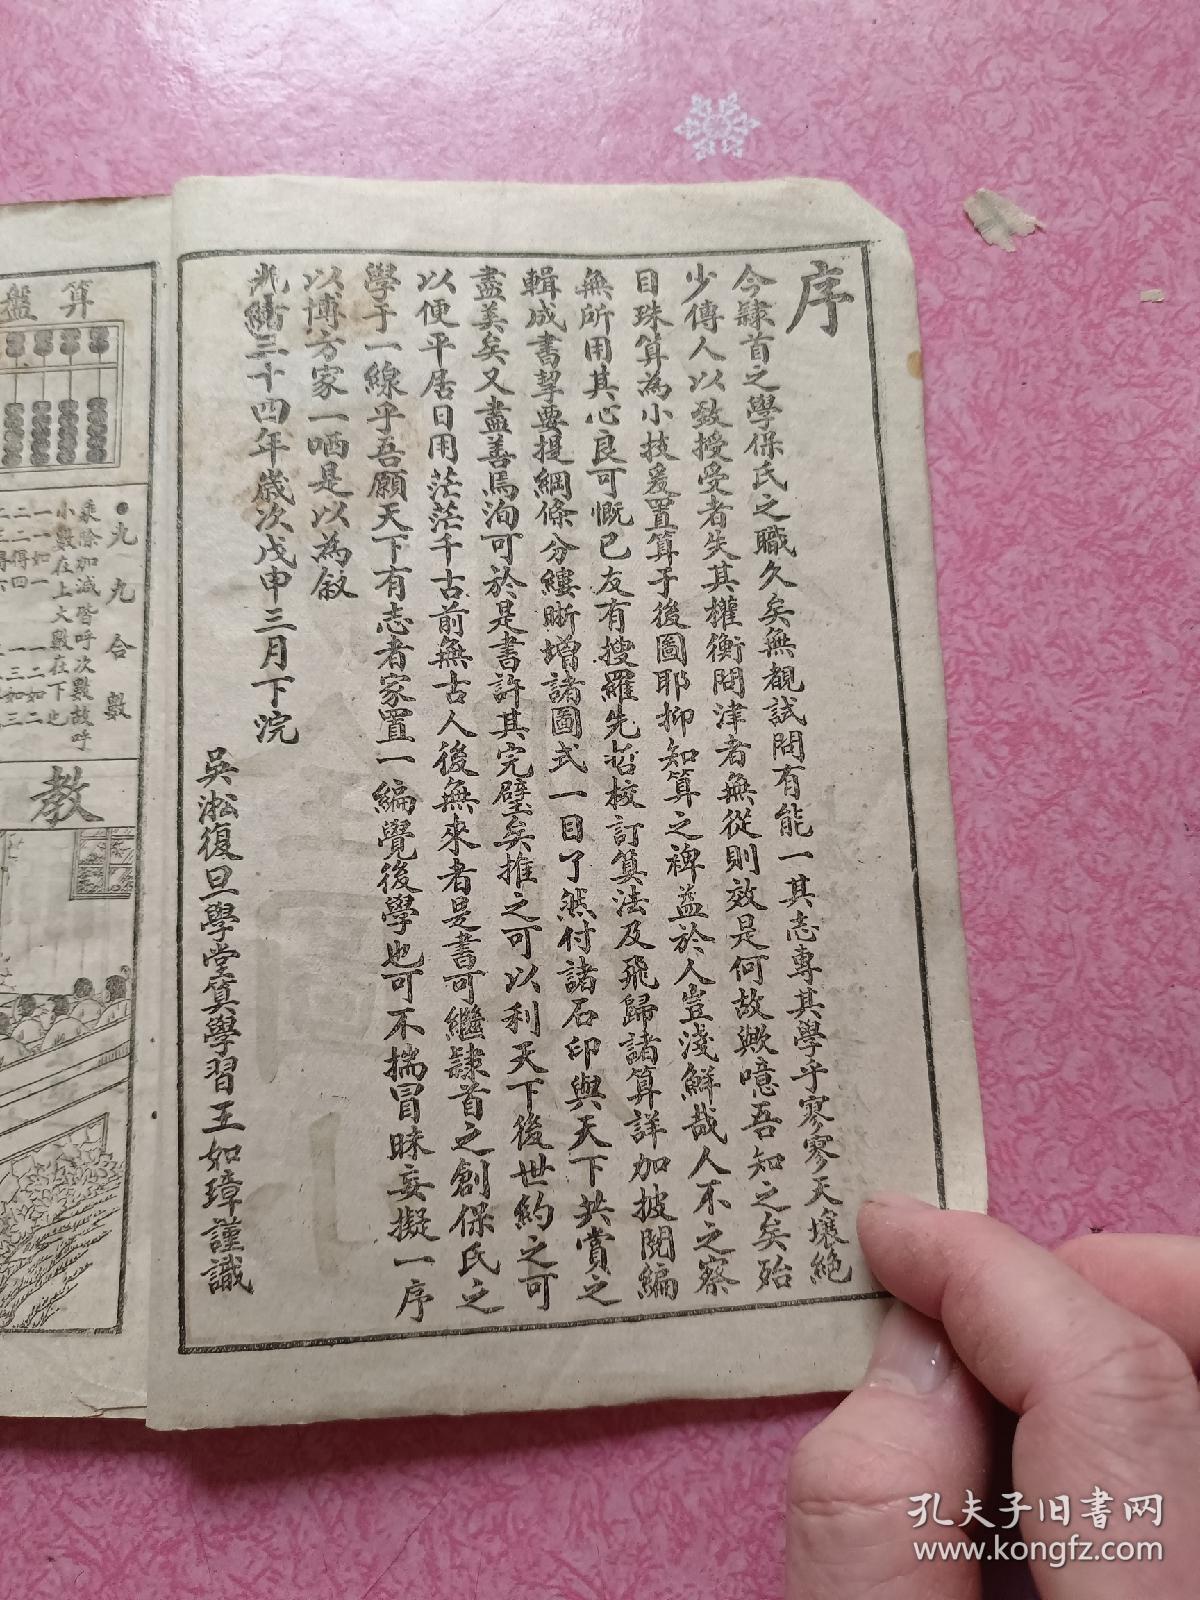 序
今隸首之學保氏之職久矣無覩試問有能一其志專其學乎寥寥天壤絶
少傳人以致授受者失其權衡問津者無從則效是何故歟噫吾知之矣殆
目珠算為小技爰置算于後圖耶抑知算之裨益於人豈淺鮮哉人不之察
無所用其心良可慨已友有搜羅先哲校訂算法及飛歸諸算詳加披閱編
輯成書挈要提綱條分縷晰增諸圖式一目了然付諸石印與天下共賞之
盡美矣又盡善焉洵可於是書許其完璧矣推之可以利天下後世約之可
以便平居日用茫茫千古前無古人後無來者是書可繼隸首之創保氏之
學于一線乎吾願天下有志者家置一編覺後學也可不揣冒昧妄擬一序
以博方家一哂是以為敘
光緒三十四年歲次戊申三月下浣
吳淞復旦學堂算學習王如璋謹識
算盤
九九合數
乘除加減皆呼次數故呼
小數在上大數在下也
一一如一 一二如二
二二得四 一三如三
教
孔夫子旧书网
www.kongfz.com